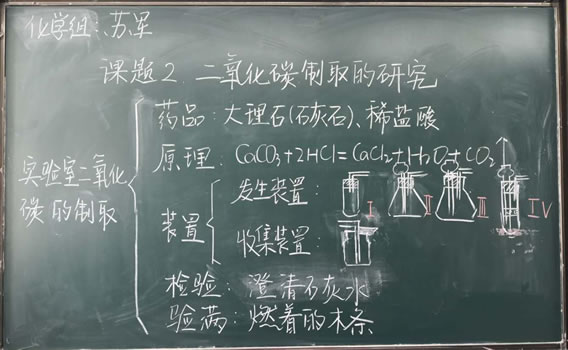 化学组:苏军
课题2 二氧化碳制取的研究
实验室二氧化
碳的制取
药品:大理石(石灰石)、稀盐酸
原理:CaCO3+2HCl=CaCl2+H2O+CO2
装置
发生装置:
I II III IV
收集装置:
检验:澄清石灰水
验满:燃着的木条